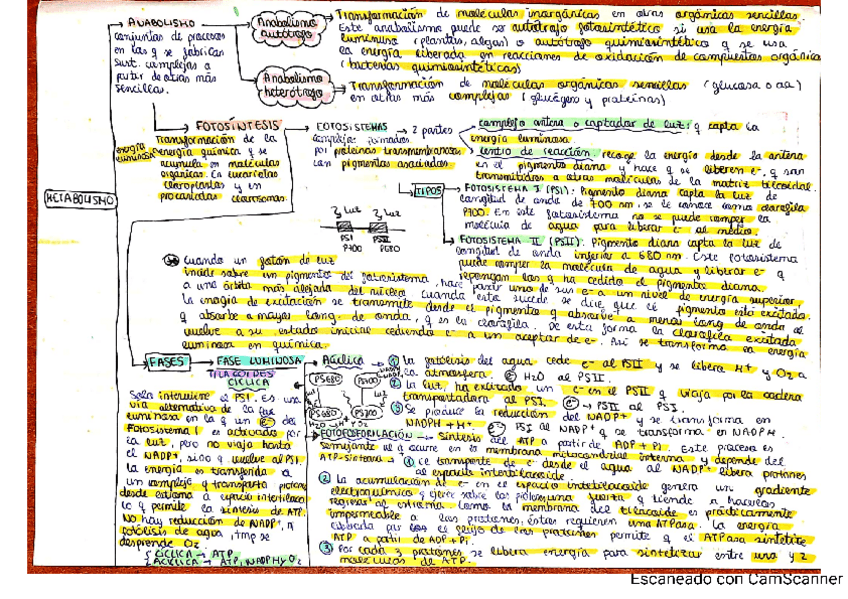 ANABOLISMO
conjuntos de procesos
en los q se fabrican
sust. complejas a
partir de otras más
sencillas.
Anabolismo
autótrofo
Transformación de moléculas inorgánicas en otras orgánicas sencillas.
Este anabolismo puede ser autótrofo fotosintético si usa la energía
luminosa (plantas, algas) o autótrofo quimiosintético q se usa
la energía liberada en reacciones de oxidación de compuestos orgánicos
(bacterias quimiosintéticas)
Anabolismo
heterótrofo
Transformación de moléculas orgánicas sencillas (glucosa o aa)
en otras más complejas (glucógeno y proteínas)
METABOLISMO
energía
luminosa
FOTOSÍNTESIS
Transformación de la
energía química q se
acumula en moléculas
orgánicas. En eucariotas
cloroplastos y en
procariotas clorosomas.
FOTOSISTEMAS
complejos formados
por proteínas transmembranosas
con pigmentos asociados
2 partes
complejo antena o captador de luz: q capta la
energía luminosa
centro de reacción: recoge la energía desde la antena
en el pigmento diana y hace q se liberen e-, q son
transmitidos a otras moléculas de la matriz tilacoidal.
TIPOS
FOTOSISTEMA I (PSI): Pigmento diana capta la luz de
longitud de onda de 700 nm, se le conoce como clorofila
P700. En este fotosistema no se puede romper la
molécula de agua para liberar e- al medio.
FOTOSISTEMA II (PSII): Pigmento diana capta la luz de
longitud de onda inferior a 680 nm. Este fotosistema
puede romper la molécula de agua y liberar e- q
repongan los q ha cedido el pigmento diana.
Luz Luz
PSI PSII
P700 P680
Cuando un fotón de luz
incide sobre un pigmento del fotosistema, hace pasar uno de sus e- a un nivel de energía superior,
a una órbita más alejada del núcleo. Cuando esto sucede se dice que el pigmento está excitado.
La energía de excitación se transmite desde el pigmento q absorbe a menos long de onda al
q absorbe a mayor long. de onda, q es la clorofila. De esta forma la clorofila excitada
vuelve a su estado inicial cediendo e- a un aceptor de e-. Así se transforma la energía
luminosa en química.
FASES
FASE LUMINOSA
TILACOIDES
CÍCLICA
Solo interviene el PSI. Es una
vía alternativa de la fase
luminosa en la q un e- del
Fotosistema I es activado por
la luz, pero no viaja hasta
el NADP+, sino q vuelve al PSI.
la energía es transferida a
un complejo q transporta protones
desde estroma a espacio intertilacoi
lo q permite la síntesis de ATP.
No hay reducción de NADP+, ni
fotólisis de agua, tmp se
desprende O2
CÍCLICA → ATP
ACÍCLICA → ATP, NADPH y O2
Acíclica
PS680 P700
PS680 PS700
① La fotólisis del agua cede e- al PSII y se libera H+ y O2 a
la atmosfera. e- H2O al PSII.
② La luz, ha excitado un e- en el PSII q viaja por la cadena
transportadora al PSI. e- → PSII al PSI.
③ Se produce la reducción del NADP+ y se transforma en
NADPH + H+. e- PSI al NADP+ q se transforma en NADPH.
FOTOFOSFORILACIÓN → Síntesis del ATP a partir de ADP + Pi. Este proceso es
semejante al q ocurre en la membrana mitocondrial interna y depende del
ATP-sintasa → ① el transporte de e- desde el agua al NADP+ libera protones
al espacio intertilacoide.
② La acumulación de e- en el espacio intertilacoide genera un gradiente
electroquímico q ejerce sobre los protones una fuerza q tiende a hacerlos
regresar al estroma. Como la membrana del tilacoide es prácticamente
impermeable a los protones, éstos requieren una ATPasa. La energía
liberada por el flujo de los protones permite q el ATPasa sintetice
ATP a partir de ADP + Pi.
③ Por cada 3 protones se libera energía para sintetizar entre uno y 2
moléculas de ATP.
Escaneado con CamScanner